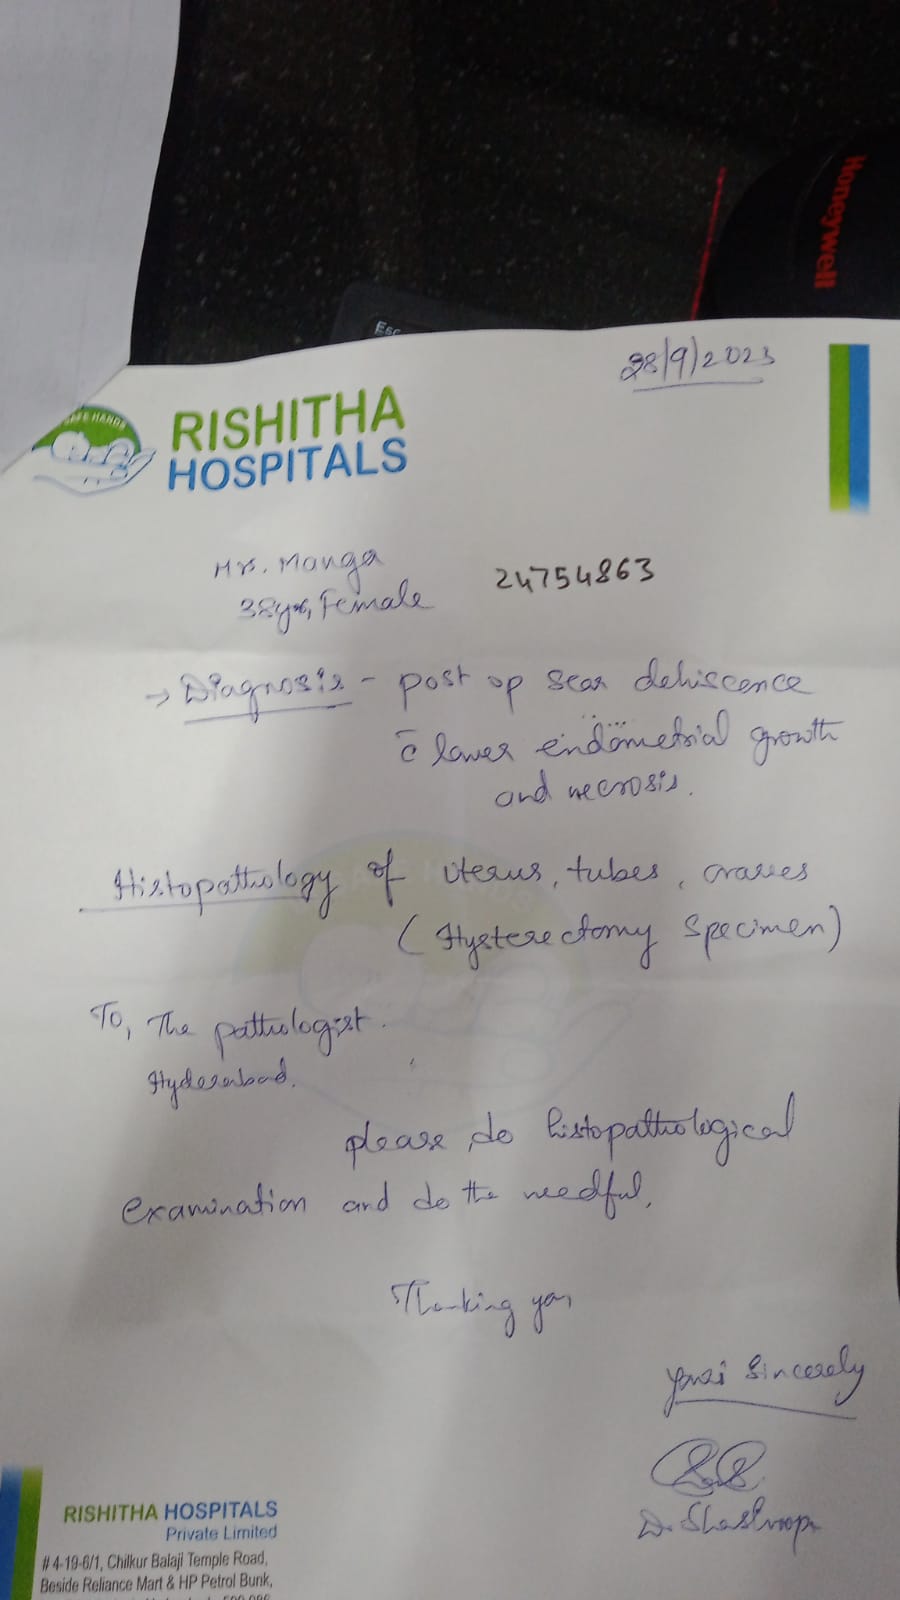 Honeywell
Esc
28/9/2023
SAFE HANDS
RISHITHA
HOSPITALS
Mrs. Manga
38yrs, Female
24754863
→ Diagnosis - post op scar dehiscence
c̄ lower endometrial growth
and necrosis.
Histopathology of uterus, tubes, ovaries
(Hysterectomy specimen)
To, The pathologist.
Hyderabad.
please do histopathological
examination and do the needful.
Thanking you
yours sincerely
RISHITHA HOSPITALS
Private Limited
# 4-19-6/1, Chilkur Balaji Temple Road,
Beside Reliance Mart & HP Petrol Bunk,